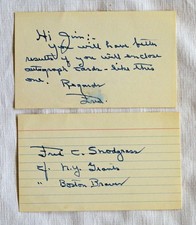 Hi Jim:-
You will have better
results if you will enclose
autograph cards - like this
one! Regards
Fred.
Fred C. Snodgrass
of N.Y. Giants
" Boston Braves